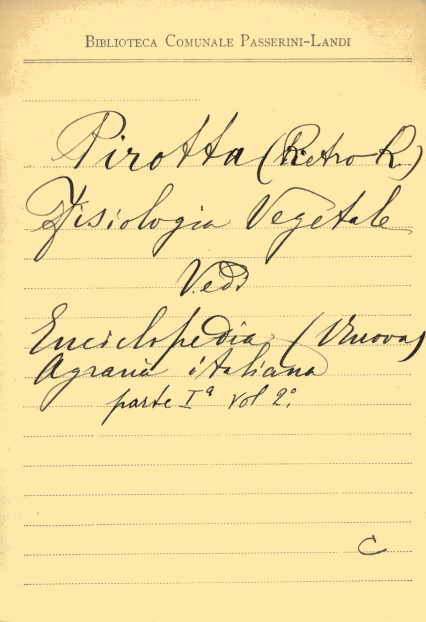 BIBLIOTECA COMUNALE PASSERINI-LANDI
Pirotta (Retro R.)
Fisiologia Vegetale
Vedi
Enciclopedia (Nuova)
Agraria italiana
parte Iª vol 2º.
C